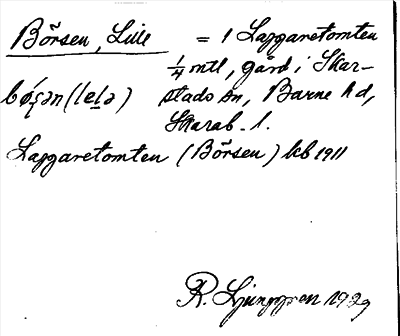 Börsen, Lille = 1 Laggaretomten
1/4 mtl, gård i Skar-
bǿʂən (lelə) stads sn, Barne hd,
Skarab. l.
Laggaretomten (Börsen) kb 1911
R. Ljunggren 1929